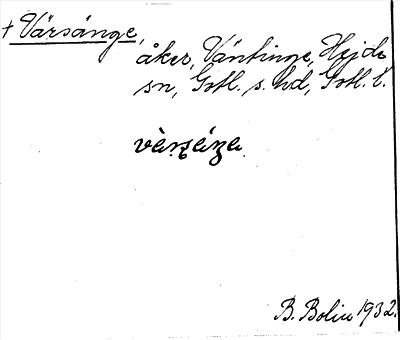 + Vårsänge,
åker, Väntinge, Hejde
sn, Gotl. s. hd, Gotl. l.
B. Bolin 1932.